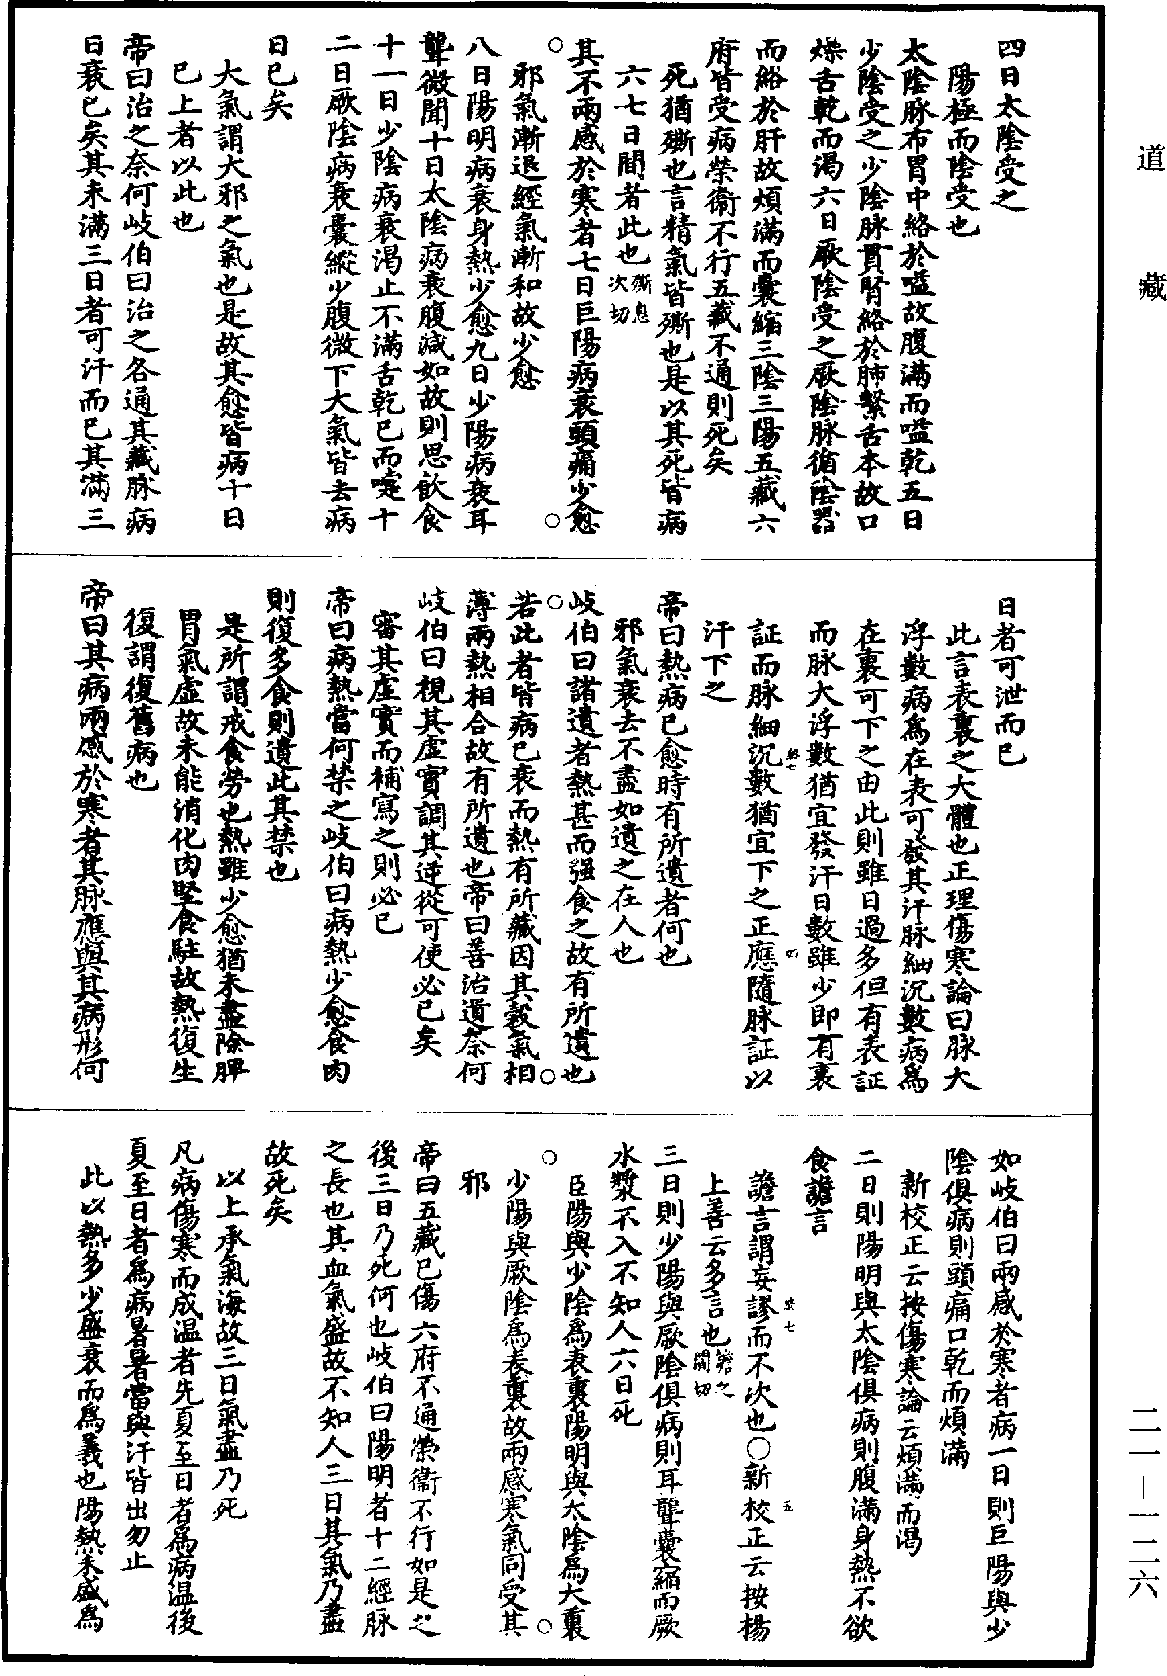 道藏
四日太陰受之
陽極而陰受也
太陰脉布胃中絡於嗌故腹滿而嗌乾五日
少陰受之少陰脉貫腎絡於肺繫舌本故口
燥舌乾而渴六日厥陰受之厥陰脉循陰器
而絡於肝故煩滿而囊縮三陰三陽五藏六
府皆受病榮衛不行五藏不通則死矣
死猶㒋也言精氣皆㒋也是以其死皆病
六七日間者此也㒋息
次切
其不兩感於寒者七日巨陽病衰頭痛少愈
○邪氣漸退經氣漸和故少愈○
八日陽明病衰身熱少愈九日少陽病衰耳
聾微聞十日太陰病衰腹減如故則思飲食
十一日少陰病衰渴止不滿舌乾已而嚏十
二日厥陰病衰囊縱少腹微下大氣皆去病
日已矣
大氣謂大邪之氣也是故其愈皆病十日
已上者以此也
帝曰治之奈何岐伯曰治之各通其藏脉病
日衰已矣其未滿三日者可汗而已其滿三
日者可泄而已
此言表裏之大體也正理傷寒論曰脉大
浮數病爲在表可發其汗脉細沉數病爲
在裏可下之由此則雖日過多但有表証
而脉大浮數猶宜發汗日數雖少即有裏
証而脉細沉數猶宜下之正應隨脉証以
汗下之
帝曰熱病已愈時有所遺者何也
邪氣衰去不盡如遺之在人也
岐伯曰諸遺者熱甚而强食之故有所遺也
○若此者皆病已衰而熱有所藏因其穀氣相○
薄兩熱相合故有所遺也帝曰善治遺奈何
岐伯曰視其虛實調其逆從可使必已矣
審其虛實而補寫之則必已
帝曰病熱當何禁之岐伯曰病熱少愈食肉
則復多食則遺此其禁也
是所謂戒食勞也熱雖少愈猶未盡除脾
胃氣虛故未能消化肉堅食駐故熱復生
復謂復舊病也
帝曰其病兩感於寒者其脉應與其病形何
如岐伯曰兩感於寒者病一日則巨陽與少
陰俱病則頭痛口乾而煩滿
新校正云按傷寒論云煩滿而渴
二日則陽明與太陰俱病則腹滿身熱不欲
食譫言
譫言謂妄謬而不次也○新校正云按楊
上善云多言也譫之
閻切
三日則少陽與厥陰俱病則耳聾囊縮而厥
水漿不入不知人六日死
○巨陽與少陰爲表裏陽明與太陰爲大裏
少陽與厥陰爲表裏故兩感寒氣同受其○
邪
帝曰五藏已傷六府不通榮衛不行如是之
後三日乃死何也岐伯曰陽明者十二經脉
之長也其血氣盛故不知人三日其氣乃盡
故死矣
以上承氣海故三日氣盡乃死
凡病傷寒而成温者先夏至日者爲病温後
夏至日者爲病暑暑當與汗皆出勿止
此以熱多少盛衰而爲義也陽熱未盛爲
二一—一二六